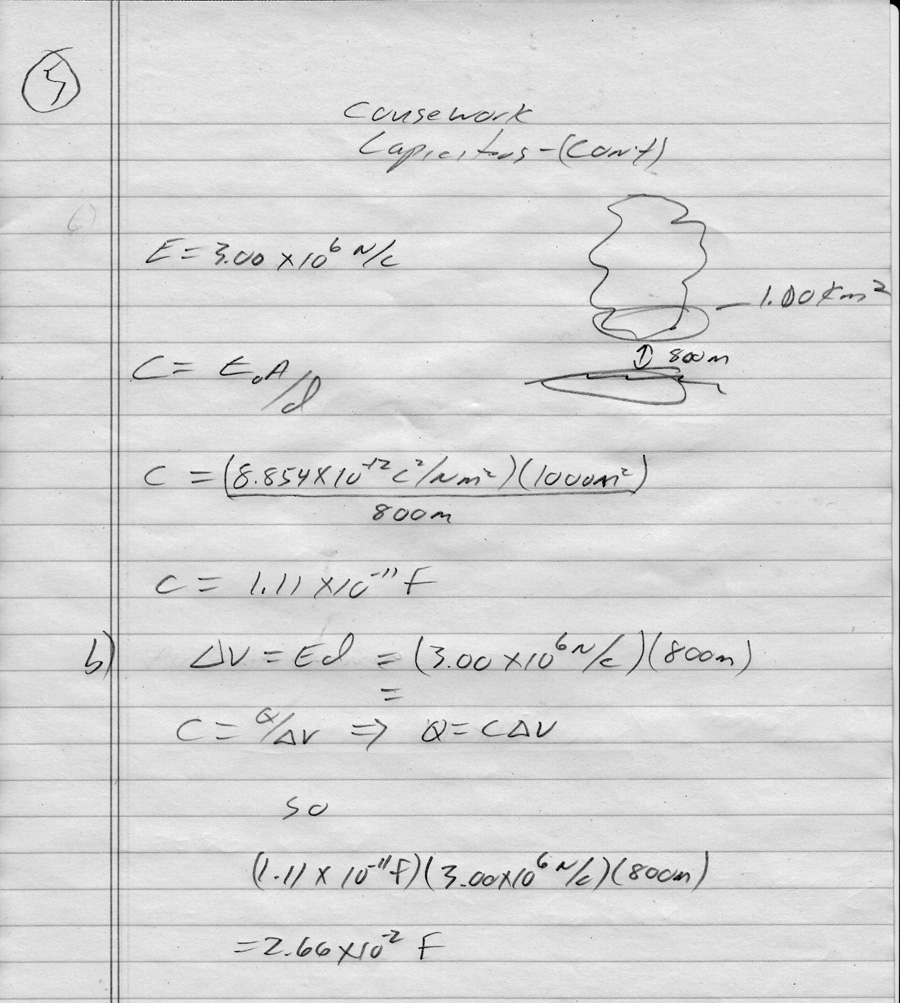 5
Cousework
Capicitos - (cont)
6)
E = 3.00 × 10⁶ N/C
1.00 Km²
↕ 800m
C = ε₀A/d
C = (8.854 × 10⁻¹² C²/Nm²)(1000m²)
800m
C = 1.11 × 10⁻¹¹ F
b) ΔV = Ed = (3.00 × 10⁶ N/C)(800m)
=
C = Q/ΔV ⇒ Q = CΔV
so
(1.11 × 10⁻¹¹ F)(3.00 × 10⁶ N/C)(800m)
= 2.66 × 10⁻² F